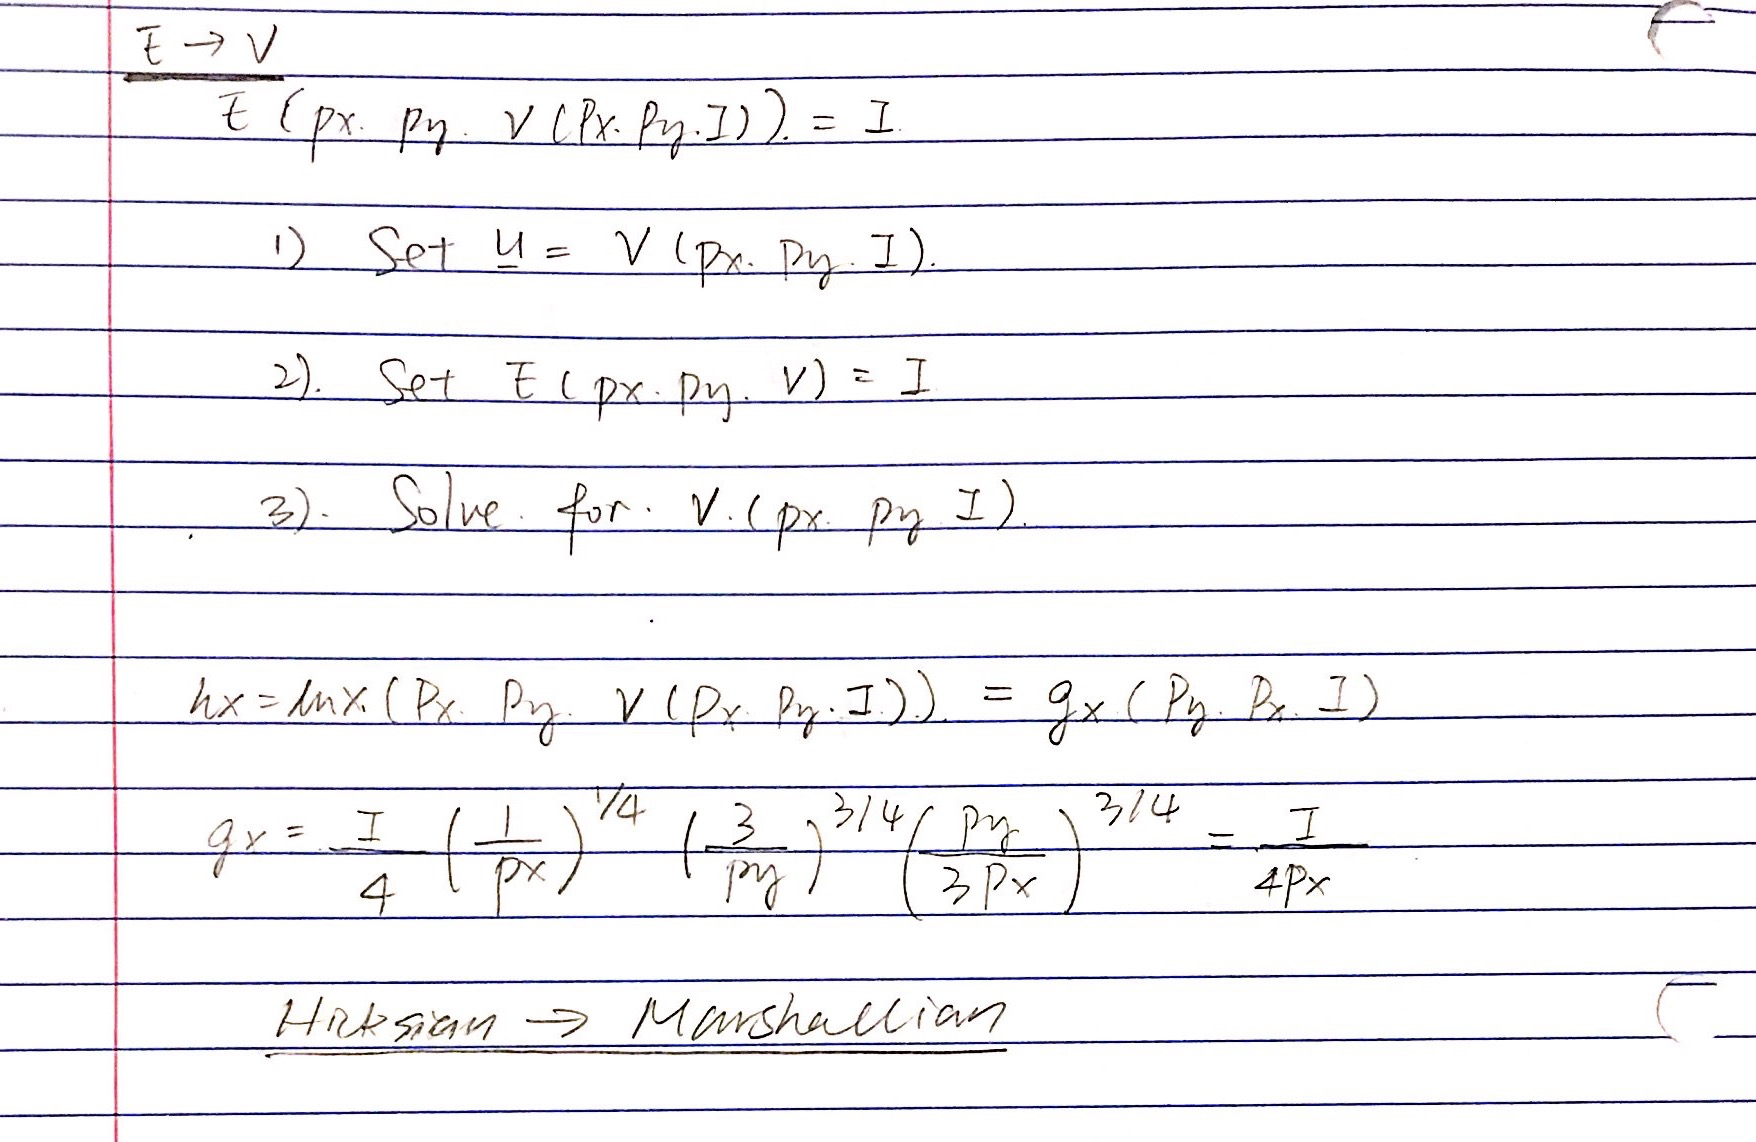 E → V
E (px. py. V (Px. Py. I)). = I.
1) Set u = V (px. py. I).
2). Set E (px. py. V) = I
3). Solve. for. V. (px. py I).
hx = hx. (Px. Py. V (Px. Py. I)). = gx. (Py. Px. I)
gx = I/4 (1/px)^1/4 (3/py)^3/4 (py/3Px)^3/4 = I/4Px
Hicksian → Marshallian